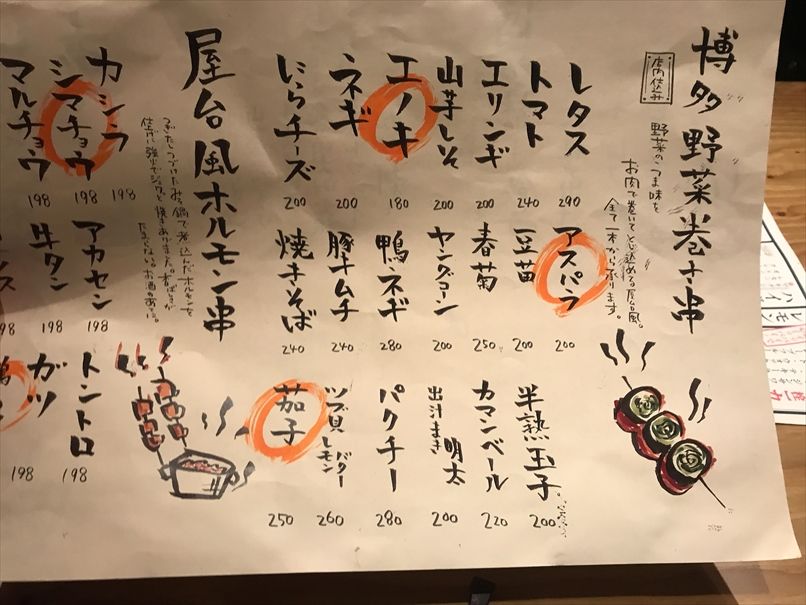 博多野菜巻き串
店内仕込み
野菜のうま味を
お肉で巻いてとじ込める。屋台風。
全て一本から承ります。
レタス 290
トマト 240
エリンギ 200
山芋しそ 200
エノキ 180
ネギ 200
にらチーズ 200
アスパラ 200
豆苗 200
春菊 250
ヤングコーン 200
鴨ネギ 280
豚キムチ 240
焼きそば 240
半熟玉子 200
カマンベール 220
出汁まき明太 200
パクチー 280
ツブ貝バターレモン 260
茄子 250
屋台風ホルモン串
たまらない。お酒のあてに。
カシラ 198
シマチョウ 198
マルチョウ 198
アカセン 198
牛タン 198
98
トントロ 198
ガツ 198
198